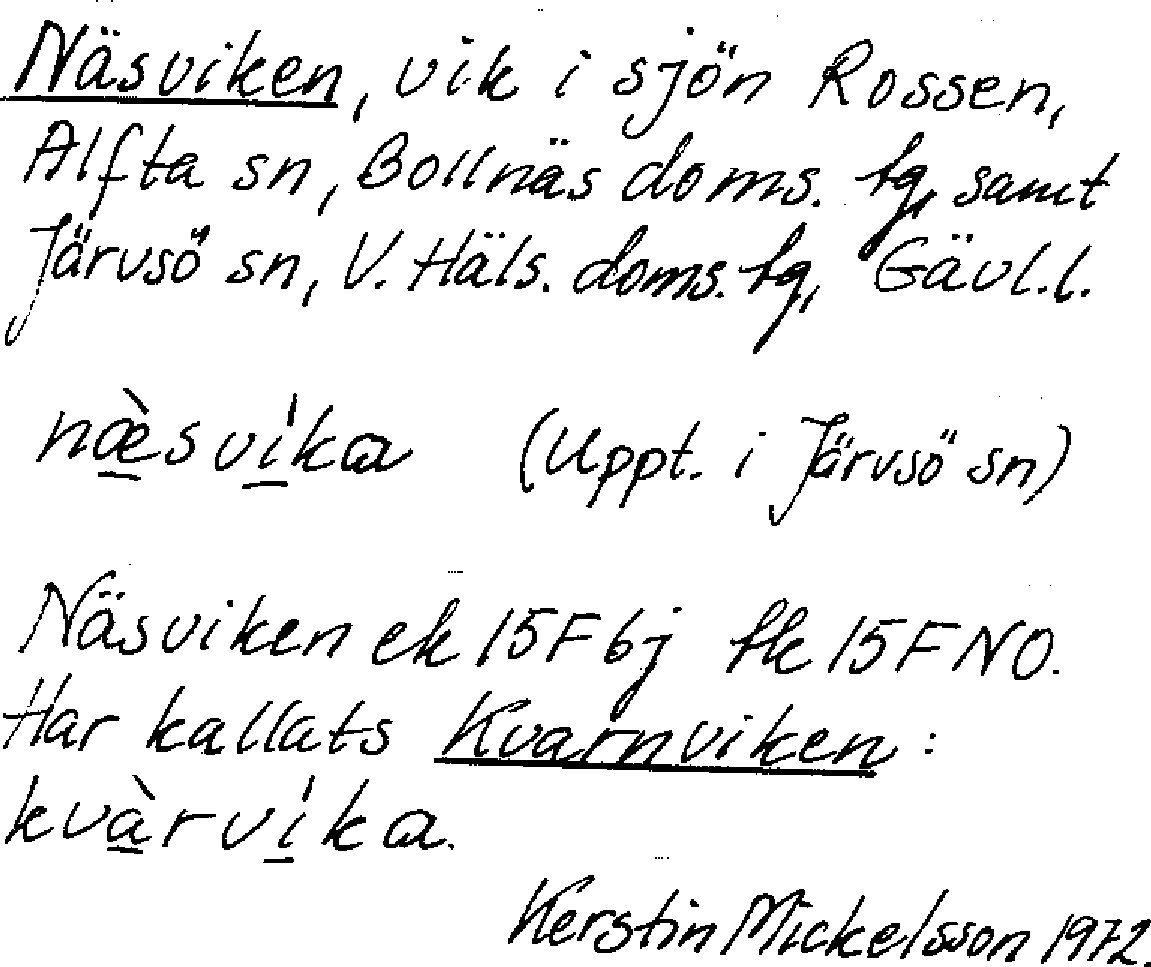 Näsviken, vik i sjön Rossen,
Alfta sn, Bollnäs doms. tg, samt
Järvsö sn, V. Häls. doms. tg, Gävl. l.
næ̠̀sví̠ka (Uppt. i Järvsö sn)
Näsviken ek 15F6j tk 15F NO.
Har kallats Kvarnviken:
kvà̠rví̠ka.
Kerstin Mickelsson 1972.